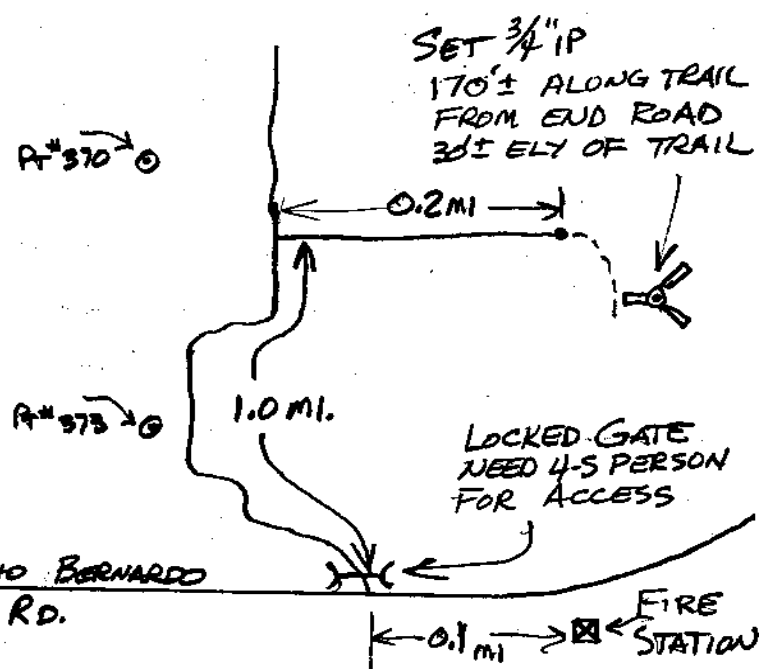 SET 3/4" IP
170'± ALONG TRAIL
FROM END ROAD
30'± ELY OF TRAIL
PT# 370
0.2 MI
PT# 373
1.0 MI.
LOCKED GATE
NEED 4-S PERSON
FOR ACCESS
BERNARDO
RD.
0.1 MI
FIRE
STATION